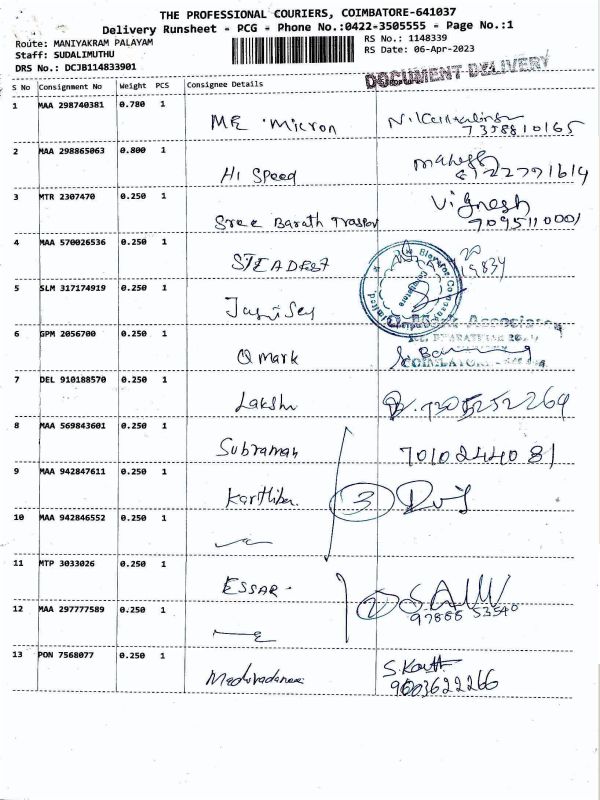 THE PROFESSIONAL COURIERS, COIMBATORE-641037
Delivery Runsheet - PCG - Phone No.:0422-3505555 - Page No.:1
Route: MANIYAKRAM PALAYAM
Staff: SUDALIMUTHU
DRS No.: DCJB114833901
RS No.: 1148339
RS Date: 06-Apr-2023
DOCUMENT DELIVERY
S No Consignment No Weight PCS Consignee Details
1 MAA 298740381 0.780 1
ME Micron 7358810165
2 MAA 298865063 0.800 1
Hi Speed Mahesh
3 MTR 2307470 0.250 1
Sree Barath Traspor Vignesh
7095110001
4 MAA 570026536 0.250 1
STEADFST 19834
5 SLM 317174919 0.250 1
6 GPM 2056700 0.250 1
Q mark
7 DEL 910188570 0.250 1
Lakshi
8 MAA 569843601 0.250 1
Subraman 7010244081
9 MAA 942847611 0.250 1
Karthika 3
10 MAA 942846552 0.250 1
11 MTP 3033026 0.250 1
ESSAR - 2
12 MAA 297777589 0.250 1
97866 53540
13 PON 7568077 0.250 1
S. Kartt
9003622266